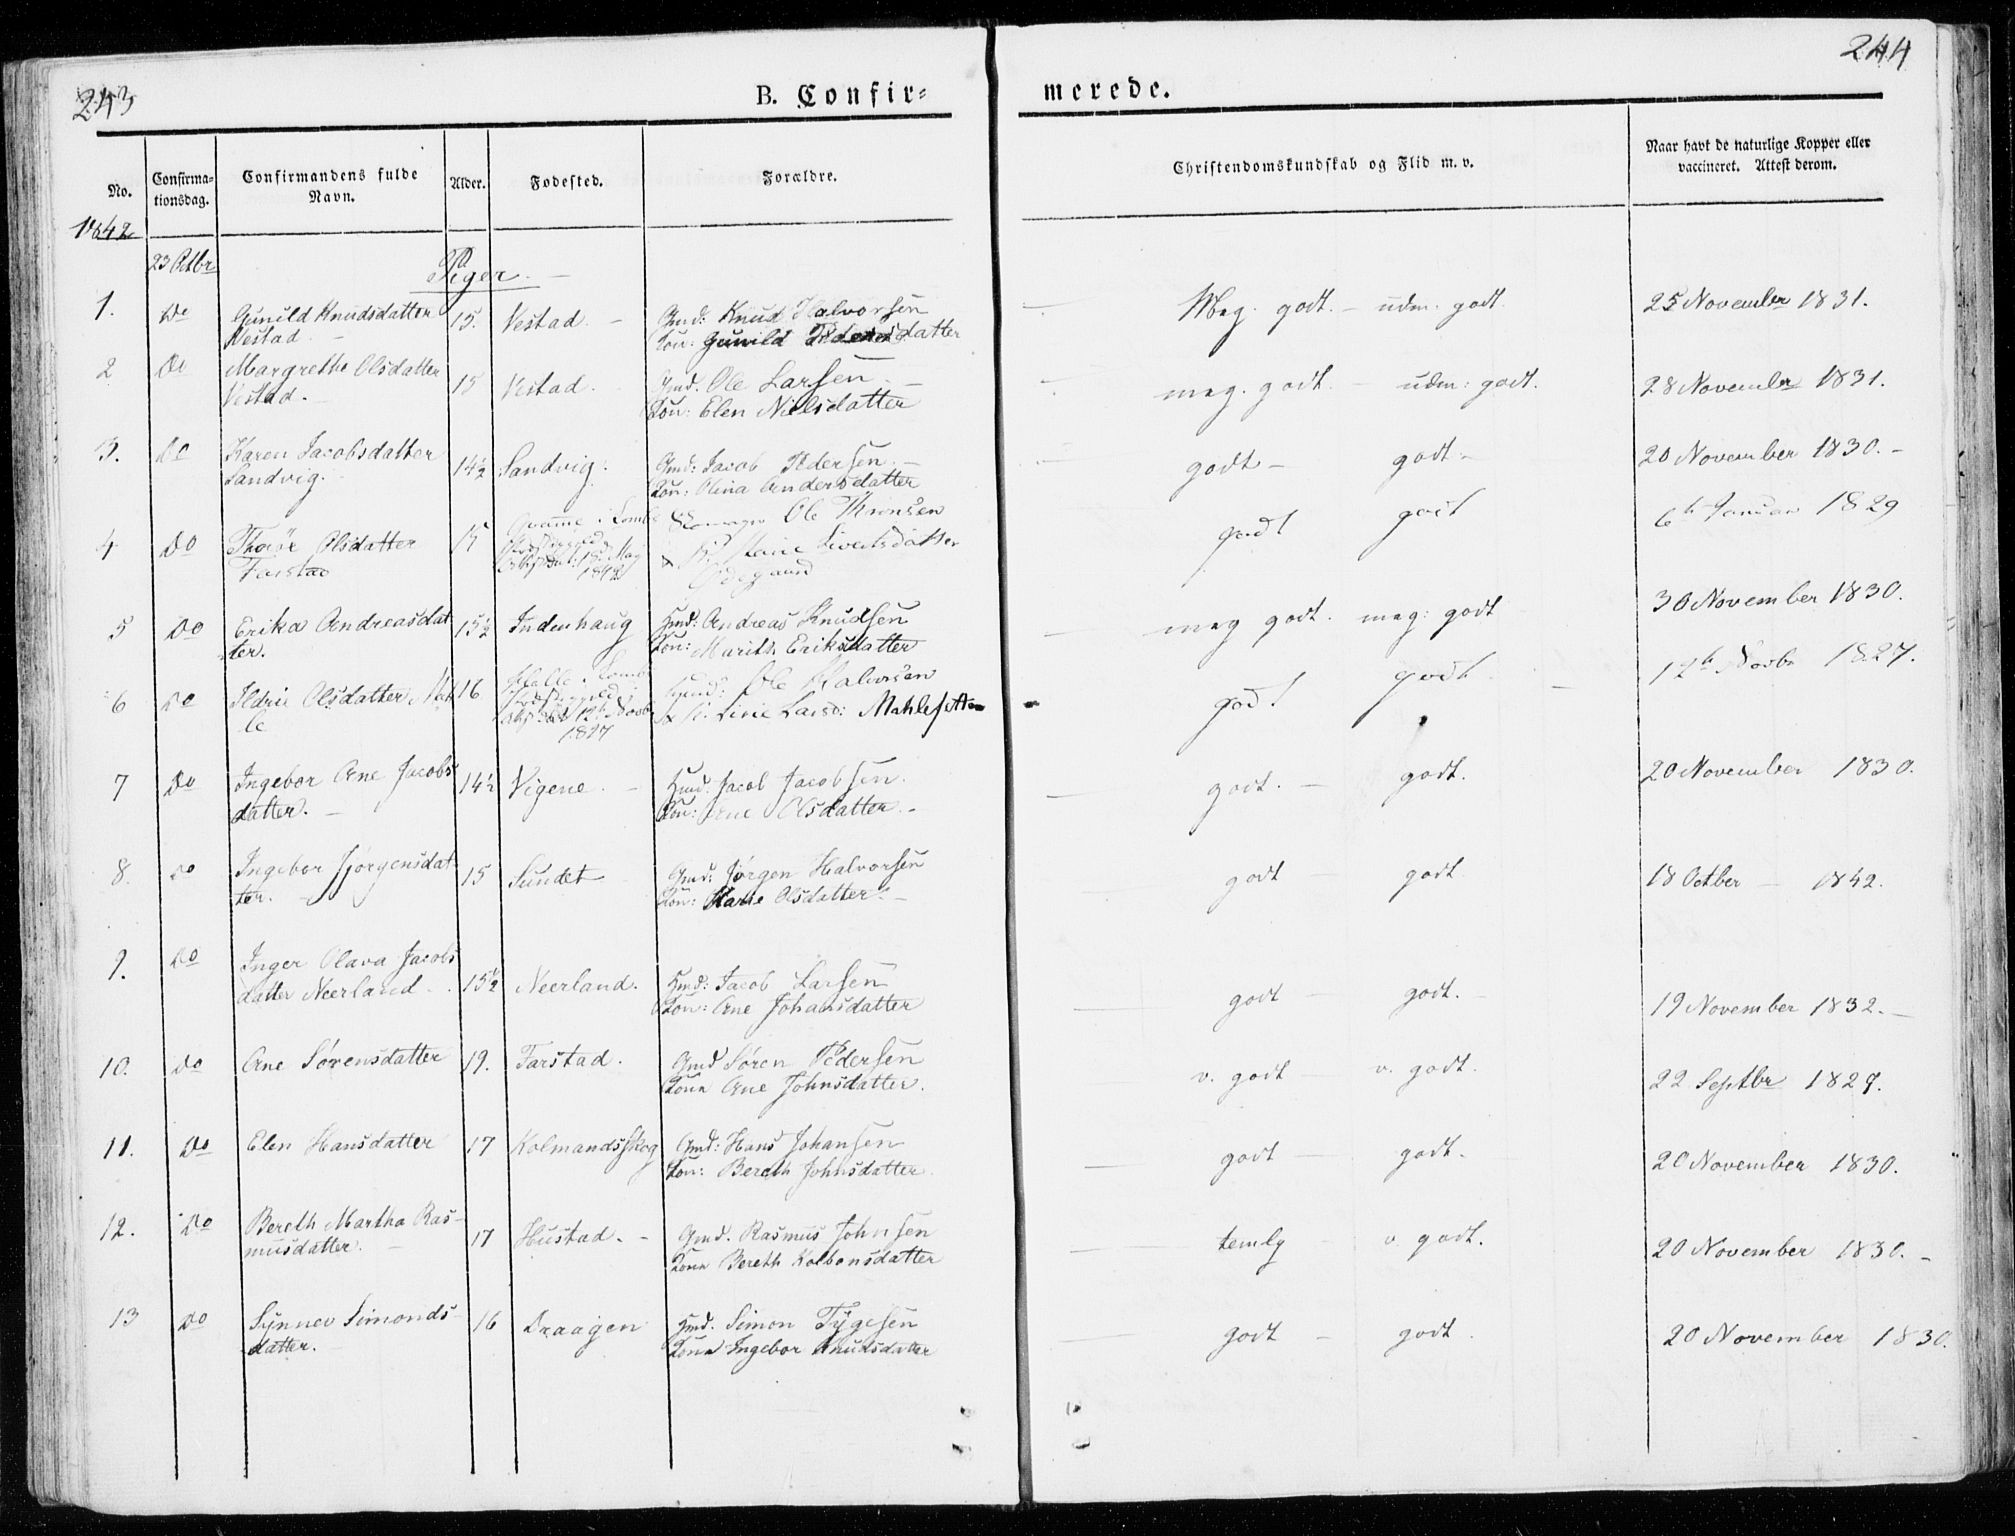 243
244
B. Confir=
merede.
No.
Confirma-
tionsdag.
Confirmandens fulde
Navn.
Alder.
Fødested.
Forældre.
Christendomskundskab og Flid m. v.
Naar havt de naturlige Kopper eller
vaccineret. Attest derom.
1842
23 Octbr
Piger. —
1. Do Gunild Knudsdatter 15. Vestad. — Gmd: Knud Halvorsen Meg. godt. — udm. godt. 25 November 1831.
Vestad. — Kon: Gunild Pedersdatter
2 Do Margrethe Olsdatter 15 Vestad. Gmd. Ole Larsen. — meg. godt. — udm: godt. 28 November 1831.
Vestad. — Kon: Elen Nielsdatter
3. Do Karen Jacobsdatter 14½ Sandvig. Gmd: Jacob Pedersen. — godt — godt — 20 November 1830. —
Sandvig. Kon: Olina Andersdatter
4 Do Olsdatter i Lomb Ole godt godt 6te Januar 1829
Farstad 18 May
1842
5 Do Erika Andreasdat 15½ Indenhaug Gmd: Andreas Knudsen meg godt. meg: godt 30 November 1830.
ter. Kon: Marith Eriksdatter
6 Do Ildrie Olsdatter 16 i Lomb Ole Halvorsen godt godt 12te Novbr 1827.
le 12te Novbr Larsd: Mahlesetter
1827
7 Do Ingebor Ane Jacobs 14½ Vigene. — Gmd: Jacob Jacobsen. godt. — godt. 20 November 1830.
datter. — Kon: Ane Olsdatter. —
8. Do Ingebor Jørgensdat 15 Sundet Gmd: Jørgen Halvorsen godt godt 18 Octber — 1842.
ter. — Kon: Marie Olsdatter. —
9. Do Inger Olava Jacobs 15½ Neerland. Gmd: Jacob Larsen godt — godt. — 19 November 1832. —
datter Neerland. Kon: Ane Johansdatter
10. Do Ane Sørensdatter 19. Farstad. Gmd Søren Pedersen v. godt v. godt. 22 Septbr 1829.
Kona Ane Johnsdatter.
11. Do Elen Hansdatter 17 Kolmandsskog Gmd: Hans Johansen godt — godt. 20 November 1830.
Kon: Bereth Johnsdatter.
12. Do Bereth Martha Ras- 17 Hustad. — Gmd. Rasmus Johnsen temlg — v. godt. 20 November 1830. —
musdatter. — Kona Bereth Kolbonsdatter
13 Do Synnev Simonds- 16 Draagen Gmd. Simon Tygesen godt — godt. 20 November 1830.
datter. — Kona Ingebor Knudsdatter